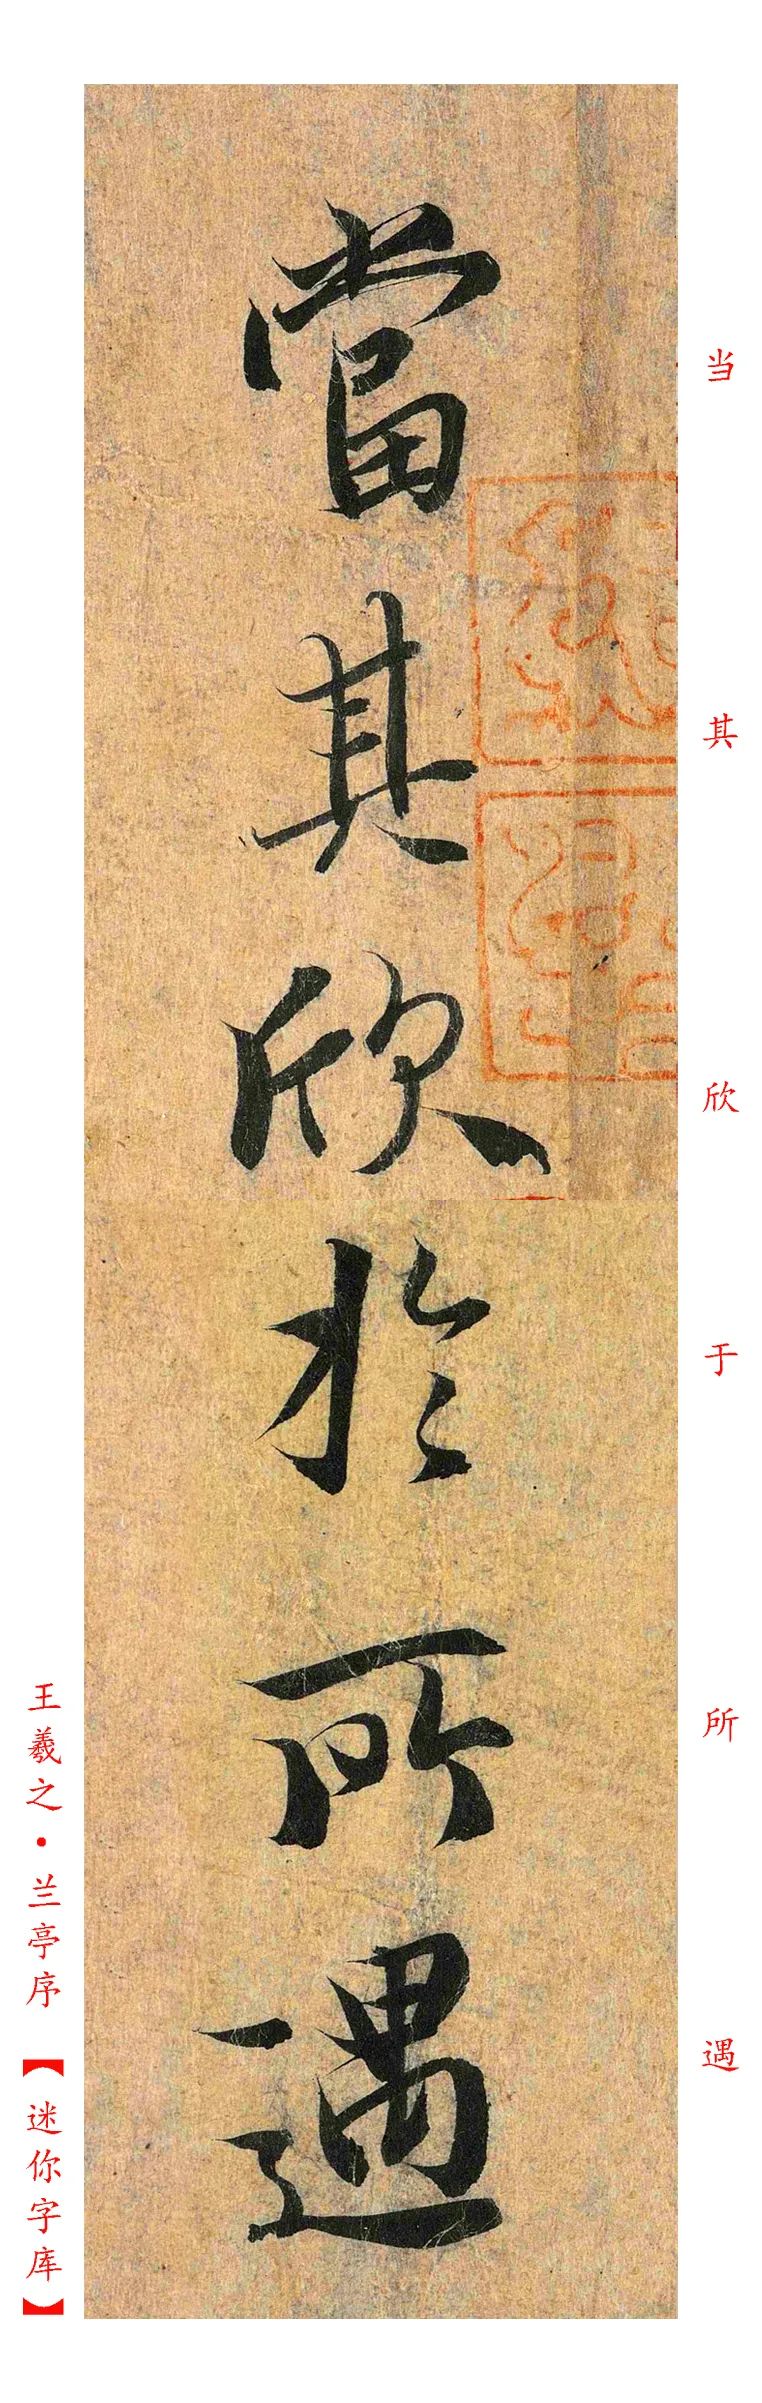 當其欣於所遇
当其欣于所遇
王羲之·兰亭序【迷你字库】